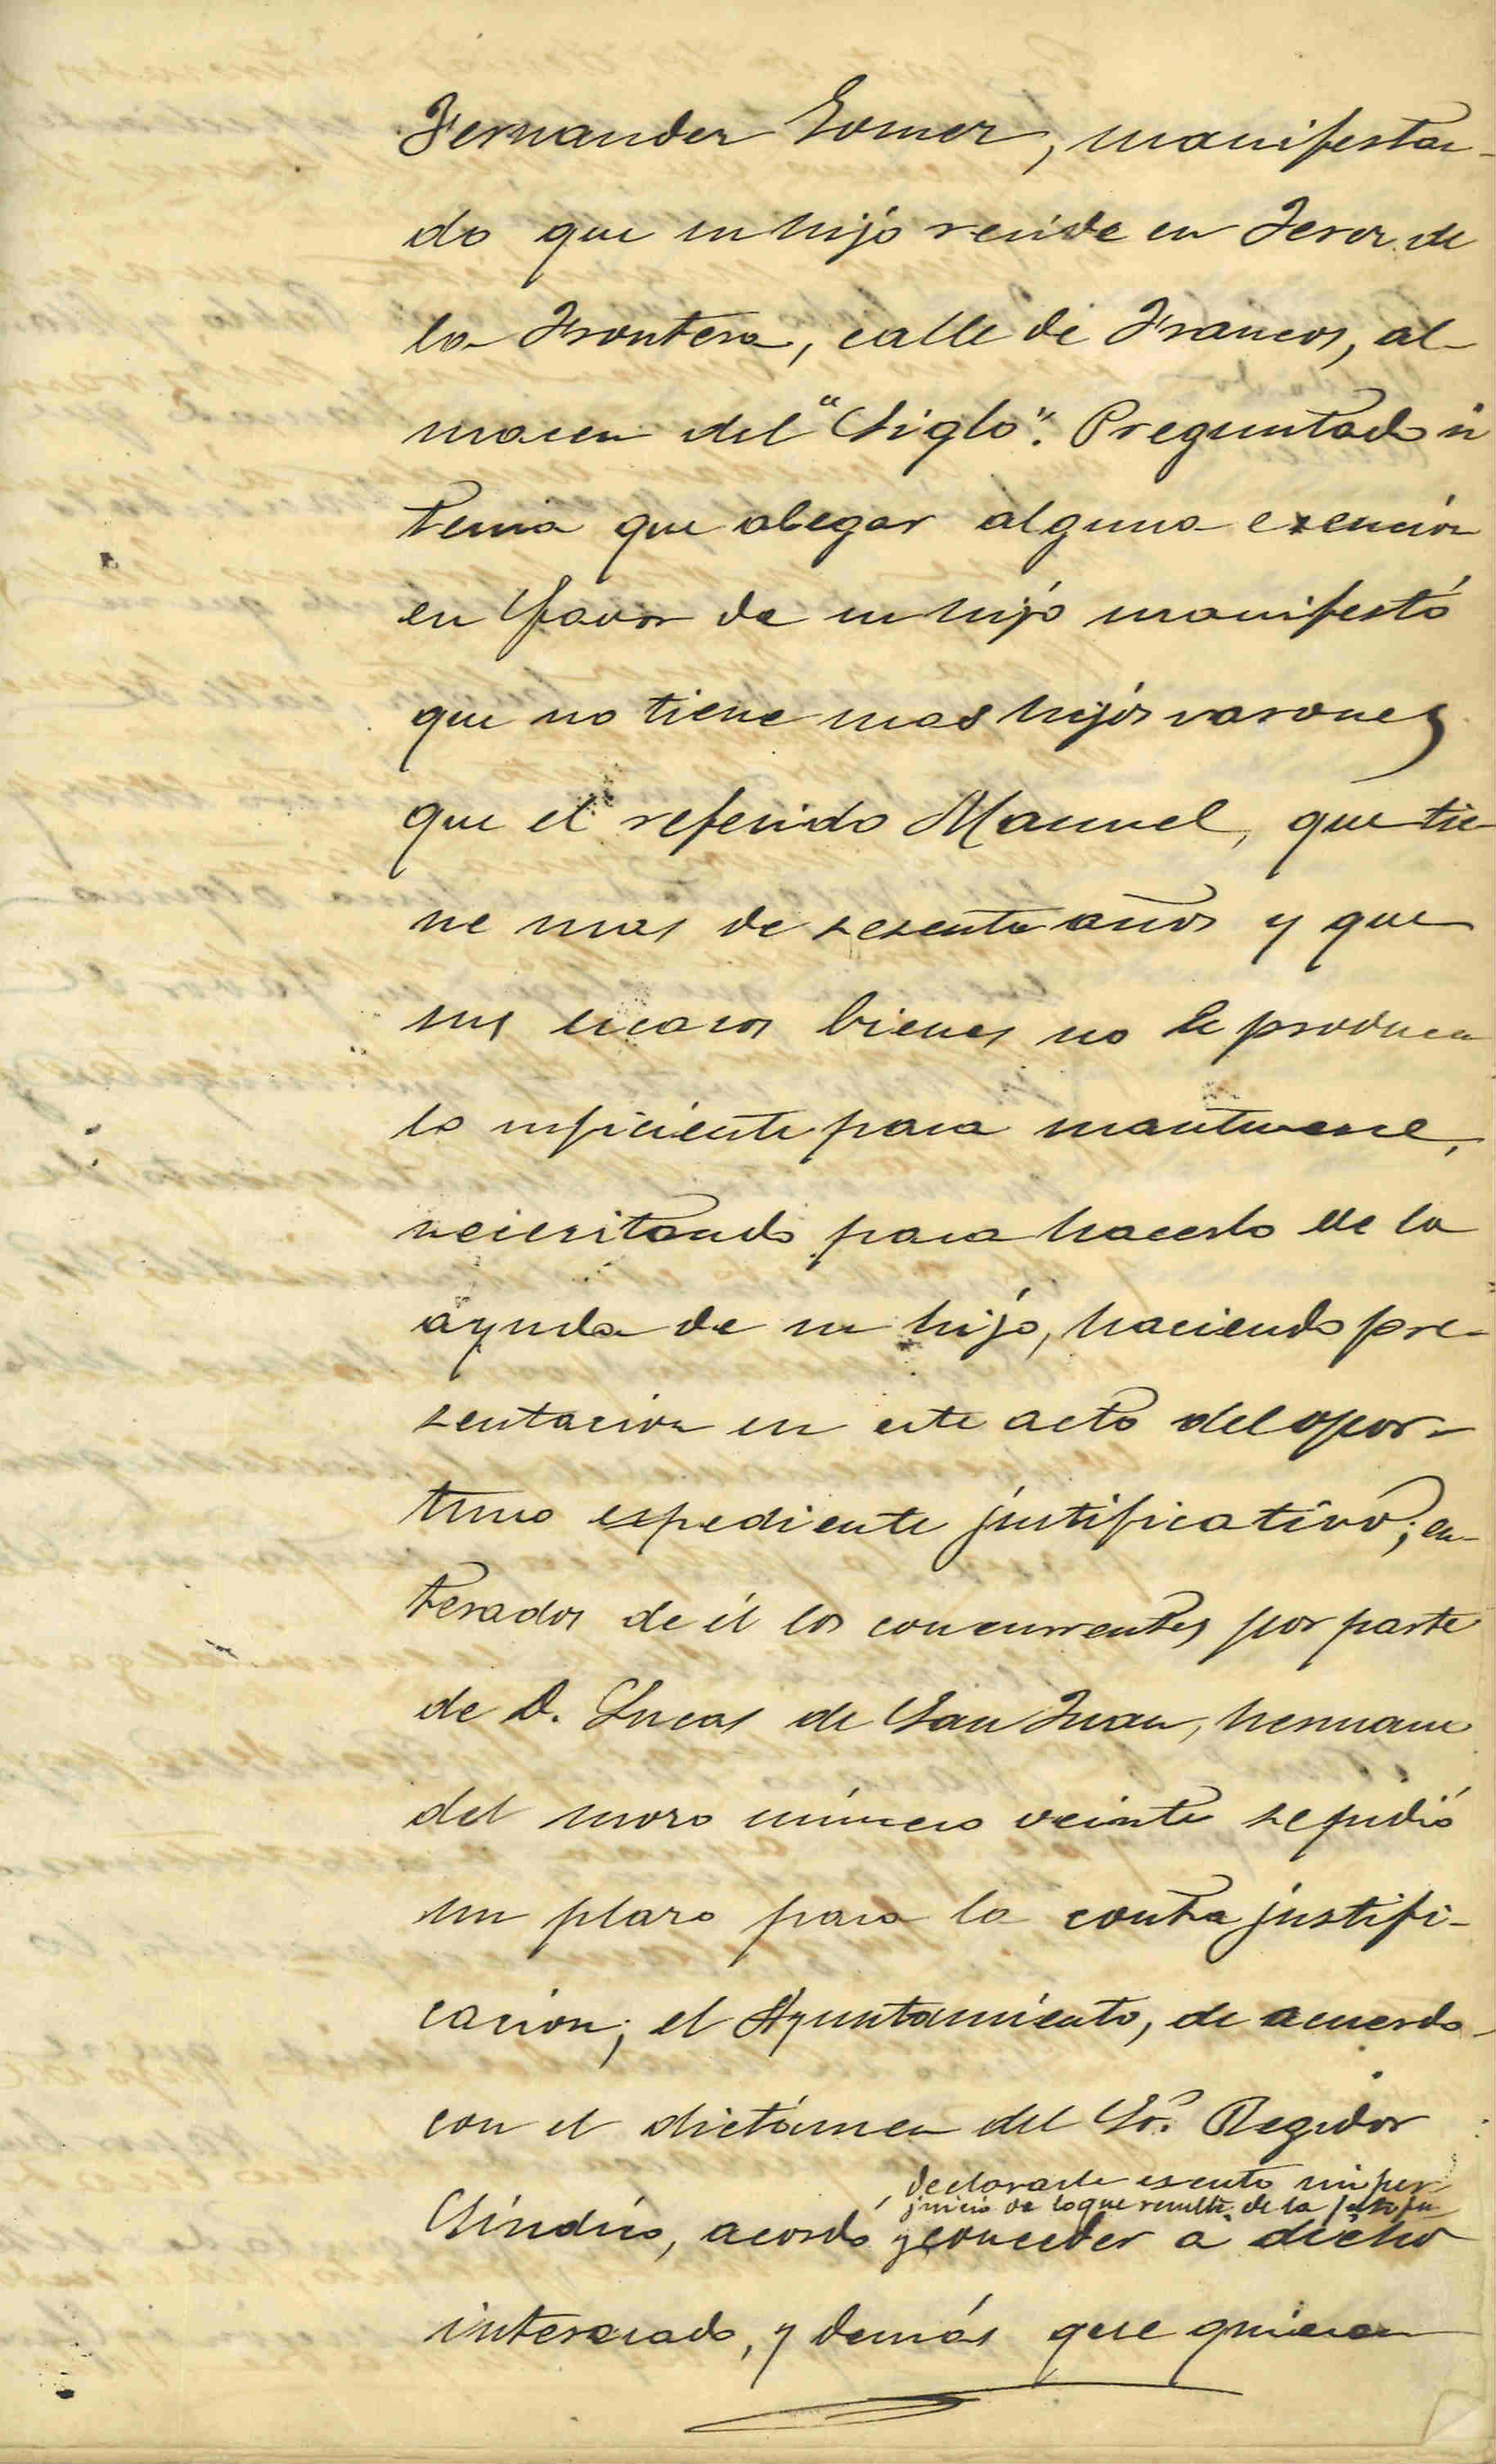 Fernandez Gomez, manifestan-
do que su hijo reside en Jerez de
la Frontera, calle de Francos, al-
macen del "Siglo". Preguntado si
tenia que alegar alguna exención
en favor de su hijo manifestó
que no tiene mas hijos varones
que el referido Manuel, que tie-
ne mas de sesenta años y que
sus escasos bienes no le producen
lo suficiente para mantenerse,
necesitando para hacerlo de la
ayuda de su hijo, haciendo pre-
sentacion en este acto del opor-
tuno espediente justificativo; en-
terados de él los concurrentes por parte
de D. Lucas de San Juan, hermano
del mozo número veinte se pidió
un plazo para la contra justifi-
cacion; el Ayuntamiento, de acuerdo
con el dictámen del Sr. Regidor
declararle esento sin per-
juicio de lo que resulte de la
Síndico, acordó y conceder a dicho
interesado, y demás que quieran